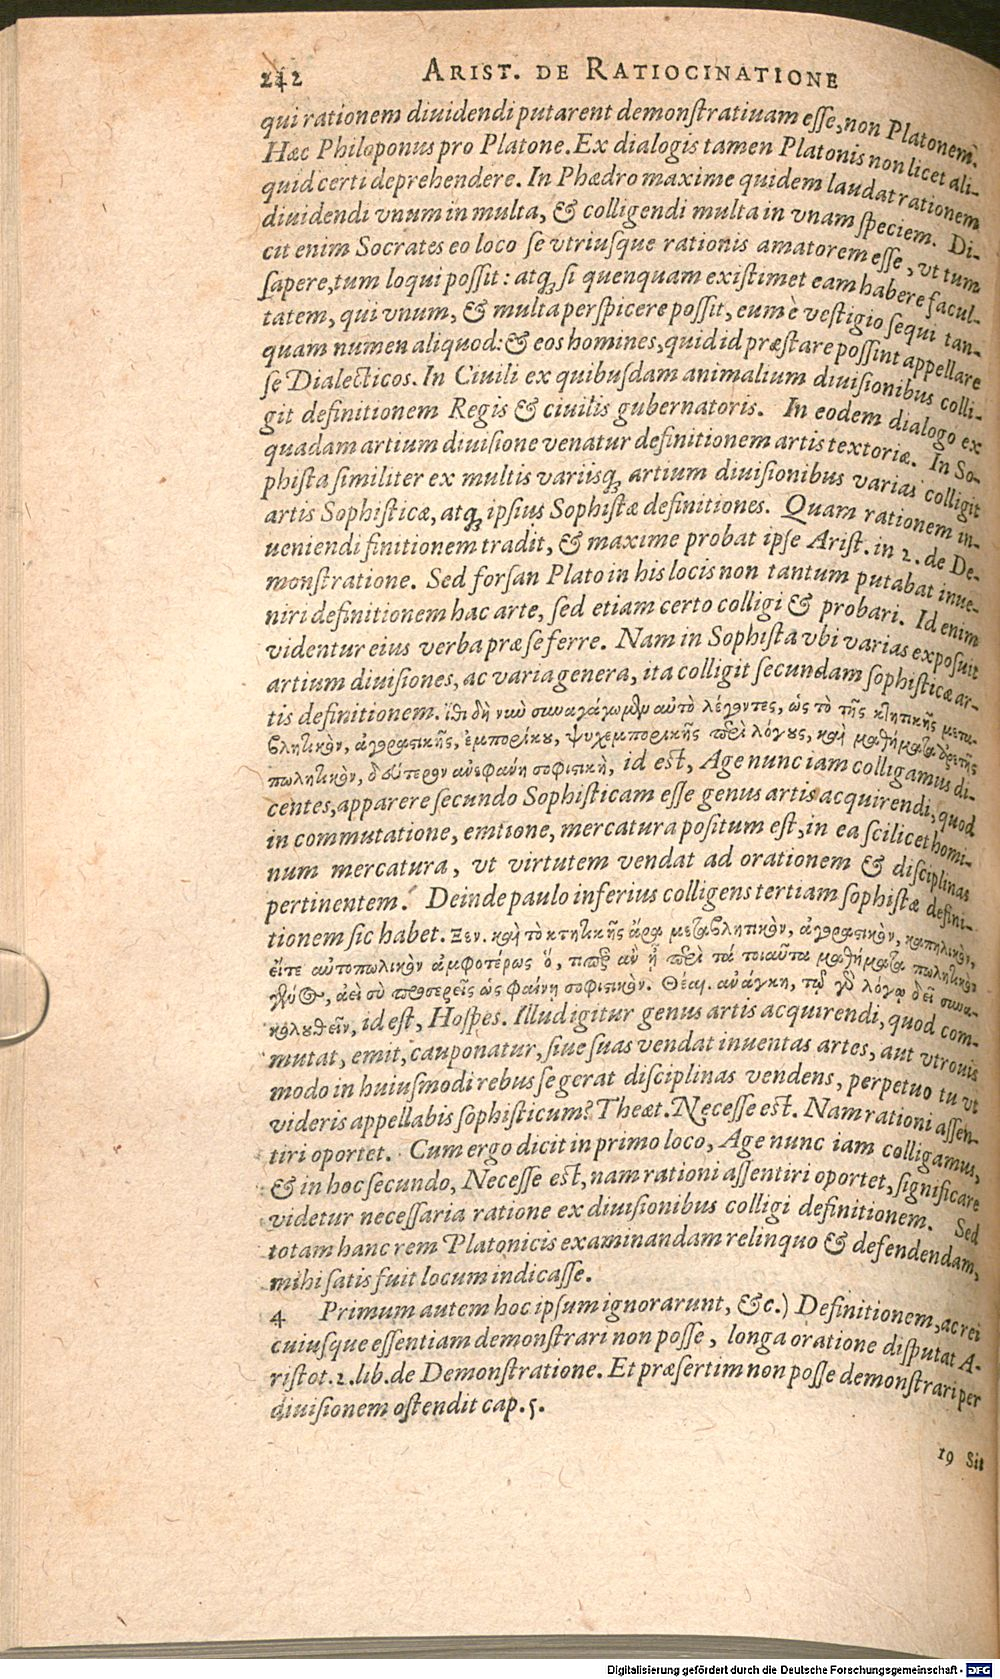 242 ARIST. DE RATIOCINATIONE
qui rationem diuidendi putarent demonſtratiuam eſſe, non Platonem.
Hæc Philoponus pro Platone. Ex dialogis tamen Platonis non licet ali-
quid certi deprehendere. In Phædro maxime quidem laudat rationem
diuidendi vnum in multa, & colligendi multa in vnam ſpeciem. Di-
cit enim Socrates eo loco ſe vtriuſque rationis amatorem eſſe, vt tum
ſapere, tum loqui poſſit: atq; ſi quenquam exiſtimet eam habere facul-
tatem, qui vnum, & multa perſpicere poſſit, eum è veſtigio ſequi tan-
quam numen aliquod: & eos homines, quid id præſtare poſſint appellare
ſe Dialecticos. In Ciuili ex quibuſdam animalium diuiſionibus colli-
git definitionem Regis & ciuilis gubernatoris. In eodem dialogo ex
quadam artium diuiſione venatur definitionem artis textoriæ. In So-
phiſta ſimiliter ex multis variisq; artium diuiſionibus varias colligit
artis Sophiſticæ, atq; ipſius Sophiſtæ definitiones. Quam rationem in-
ueniendi finitionem tradit, & maxime probat ipſe Ariſt. in 2. de De-
monſtratione. Sed forſan Plato in his locis non tantum putabat inue-
niri definitionem hac arte, ſed etiam certo colligi & probari. Id enim
videntur eius verba præ ſe ferre. Nam in Sophiſta vbi varias expoſuit
artium diuiſiones, ac varia genera, ita colligit ſecundam ſophiſticæ ar-
tis definitionem. ἴθι δὴ νυῦ συναγάγωμῳ αὐτὸ λέγοντες, ὡς τὸ τῆς κτητικῆς μετα-
βλητικὸν, ἀγοραστικῆς, ἐμπορίκου, ψυχεμπορικῆς περὶ λόγους, καὶ μαθήματα ἀρετῆς
πωλητικὸν, δεύτερον ἀνεφάνη σοφιστικὴ, id eſt, Age nunc iam colligamus di-
centes, apparere ſecundo Sophiſticam eſſe genus artis acquirendi, quod
in commutatione, emtione, mercatura poſitum eſt, in ea ſcilicet homi-
num mercatura, vt virtutem vendat ad orationem & diſciplinas
pertinentem. Deinde paulo inferius colligens tertiam ſophiſtæ defini-
tionem ſic habet. Ξεν. καὶ τὸ κτητικῆς ἄρα μεταβλητικὸν, ἀγοραστικὸν, καπηλικὸν,
εἴτε αὐτοπωλικὸν ἀμφοτέρως ὅ, τιπερ ἂν ᾖ περὶ τὰ τοιαῦτα μαθήματα πωλητικὸν
γένος, ἀεὶ σὺ προσερεῖς ὡς φαίνῃ σοφιστικὸν. Θέαι. ἀνάγκη, τῷ γὸ λόγῳ δεῖ συνα-
κολουθεῖν, id eſt, Hoſpes. Illud igitur genus artis acquirendi, quod com-
mutat, emit, cauponatur, ſiue ſuas vendat inuentas artes, aut vtrouis
modo in huiuſmodi rebus ſe gerat diſciplinas vendens, perpetuo tu vt
videris appellabis ſophiſticum? Theæt. Neceſſe eſt. Nam rationi aſſen-
tiri oportet. Cum ergo dicit in primo loco, Age nunc iam colligamus,
& in hoc ſecundo, Neceſſe eſt, nam rationi aſſentiri oportet, ſignificare
videtur neceſſaria ratione ex diuiſionibus colligi definitionem. Sed
totam hanc rem Platonicis examinandam relinquo & defendendam,
mihi ſatis fuit locum indicaſſe.
4 Primum autem hoc ipſum ignorarunt, &c.) Definitionem, ac rei
cuiuſque eſſentiam demonſtrari non poſſe, longa oratione diſputat A-
riſtot. 2. lib. de Demonſtratione. Et præſertim non poſſe demonſtrari per
diuiſionem oſtendit cap. 5.
19 Sit
Digitalisierung gefördert durch die Deutsche Forschungsgemeinschaft - DFG